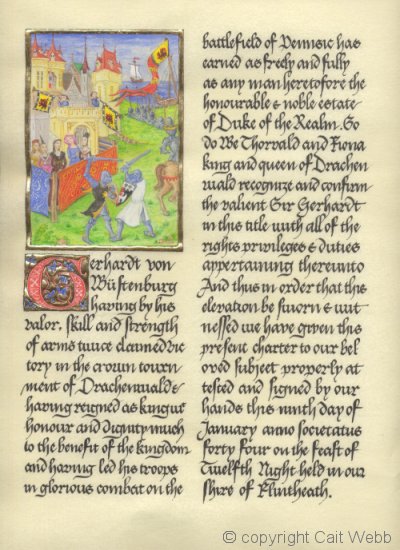 Gerhardt von
Wüstenburg
having by his
valor, skill and strength
of arms twice claimed vic
tory in the crown tourn
ment of Drachenwald &
having reigned as king us
honour and dignity much
to the benefit of the kingdom
and having led his troops
in glorious combat on the
battlefield of Pennsic has
earned as freely and fully
as any man heretofore the
honourable & noble estate
of Duke of the Realm. So
do We Thorvald and Fiona
king and queen of Drachen
wald recognize and confirm
the valient Sir Gerhardt
in this title with all of the
rights privileges & duties
appertaining thereunto
And thus in order that this
elevation be sworn & wit
nessed we have given this
present charter to our bel
oved subject properly at
tested and signed by our
hands this ninth day of
January anno societatus
forty four on the feast of
Twelfth Night held in our
shire of Flintheath.
© copyright Cait Webb